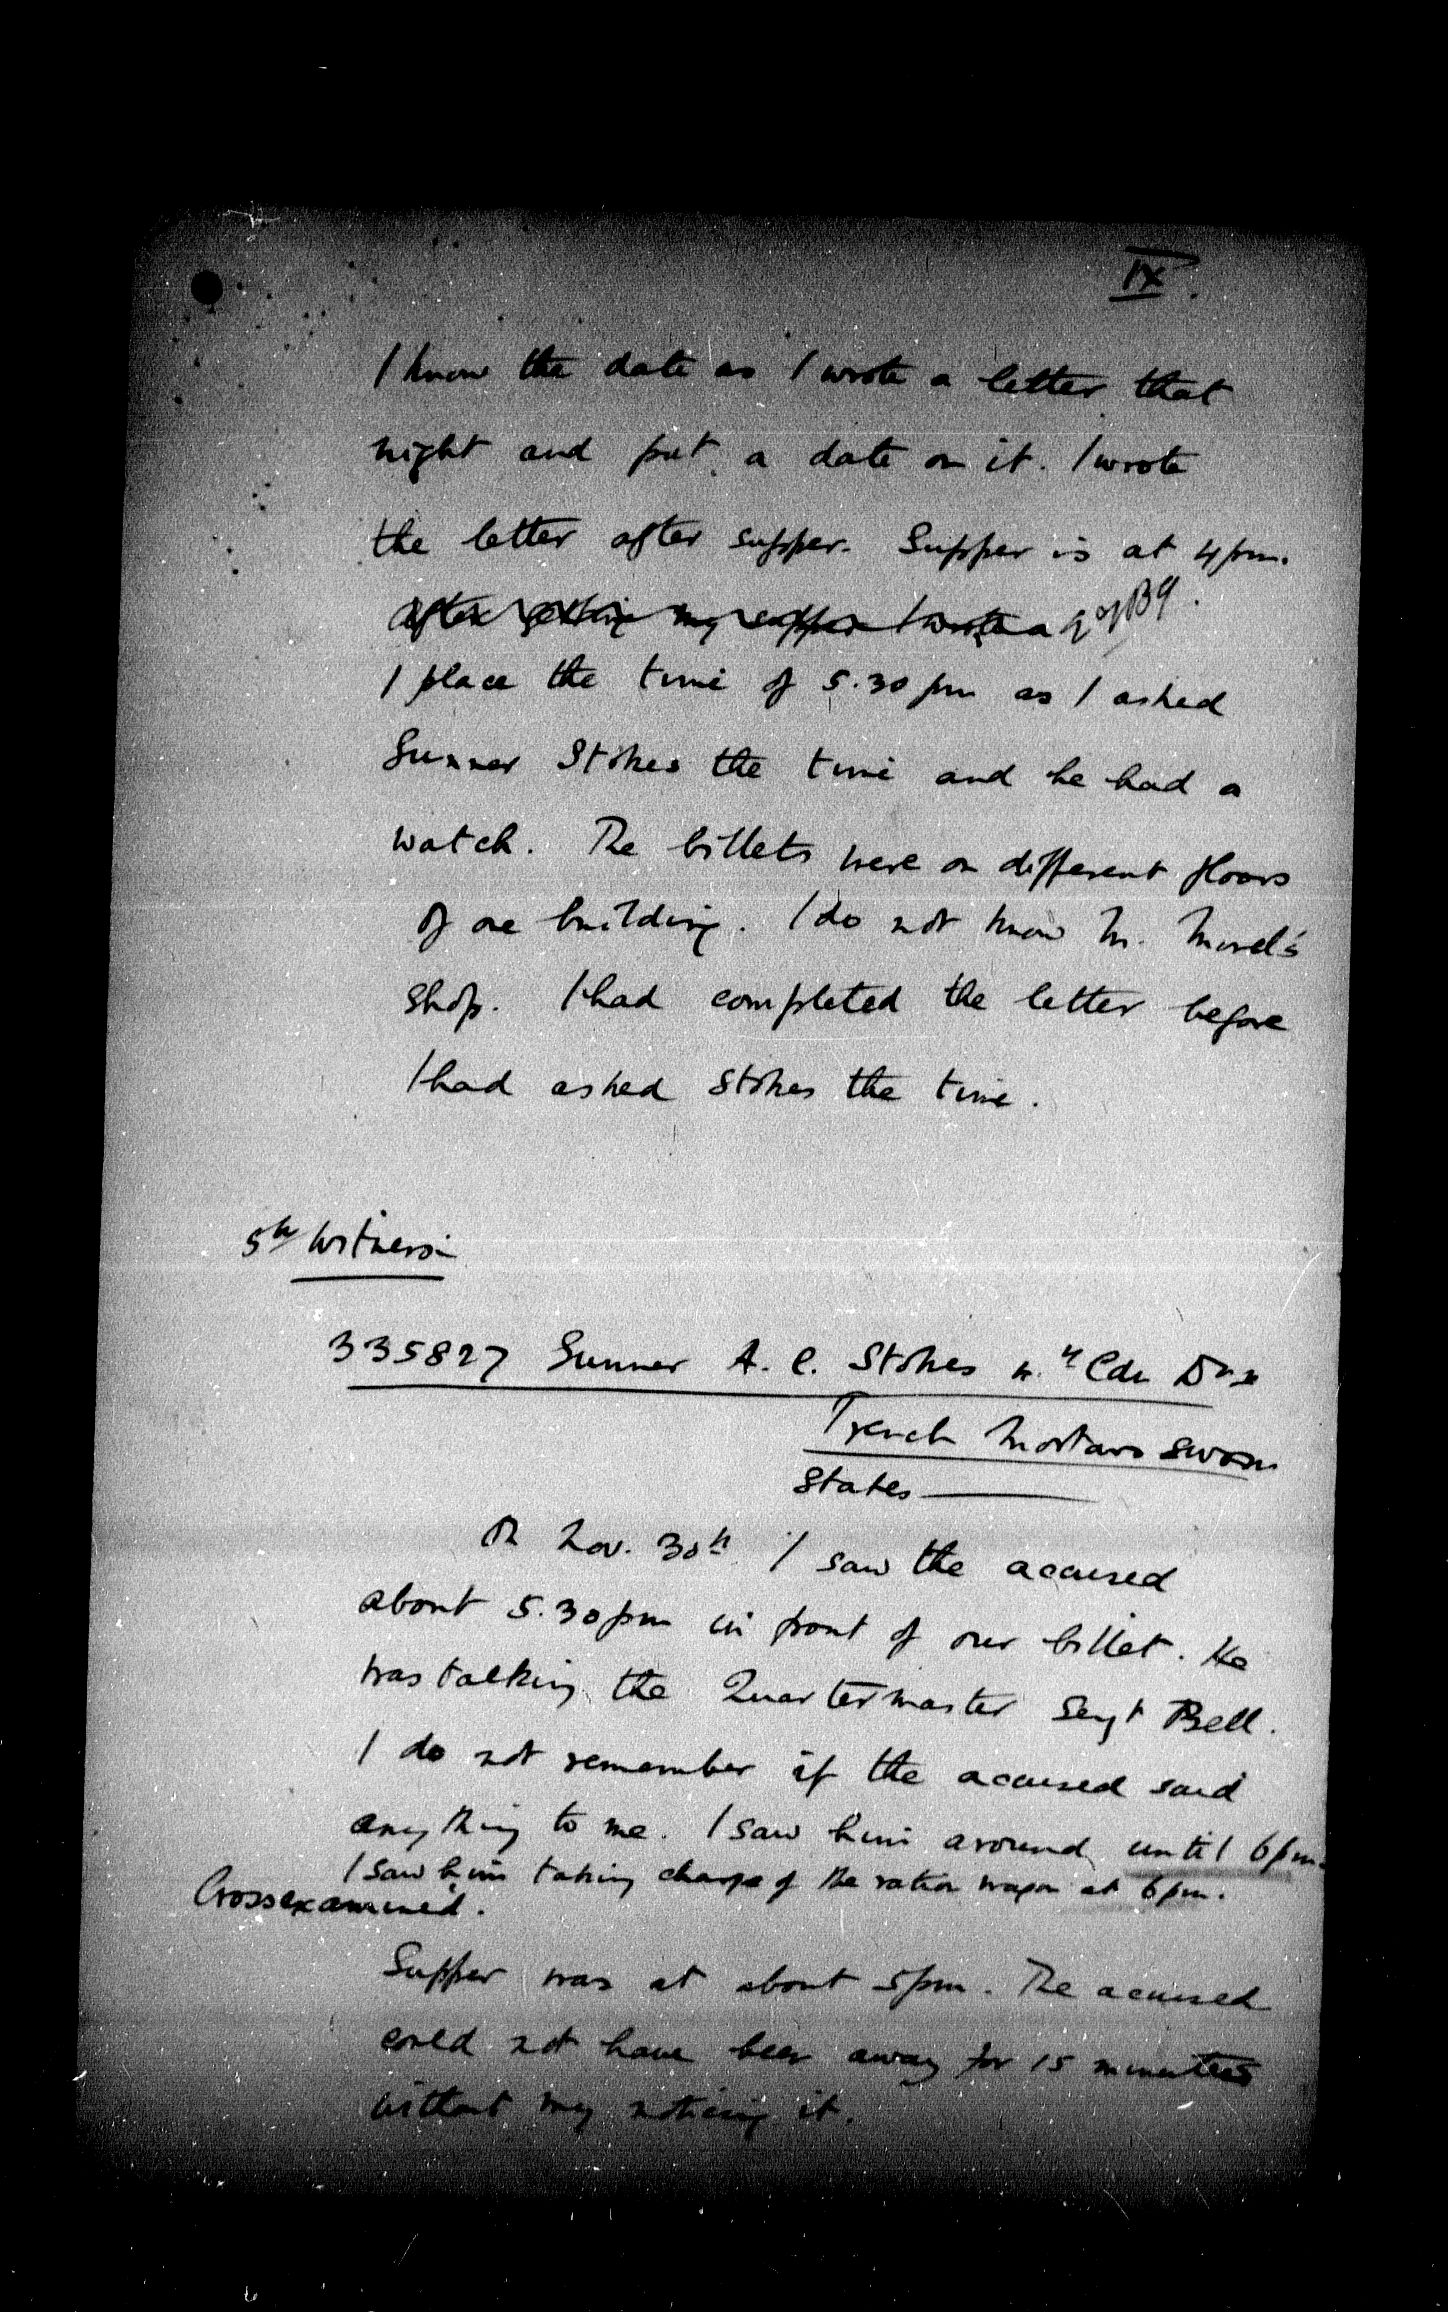 IX.
I know the date as I wrote a letter that
night and put a date on it. I wrote
the letter after supper. Supper is at 4 pm.
after getting my supper I wrote a
I place the time of 5.30 pm as I asked
Gunner Stokes the time and he had a
watch. The billets were on different floors
of one building. I do not know M. Morel's
shop. I had completed the letter before
I had asked Stokes the time.
5th Witness:-
335827 Gunner A. C. Stokes 4th Cdn Divn
Trench Mortars sworn
states
On Nov. 30th I saw the accused
about 5.30 pm in front of our billet. He
was talking the Quartermaster Sergt Bell.
I do not remember if the accused said
anything to me. I saw him around until 6 pm.
I saw him taking charge of the ration wagon at 6 pm.
Cross examined.
Supper was at about 5 pm. The accused
could not have been away for 15 minutes
without my noticing it.